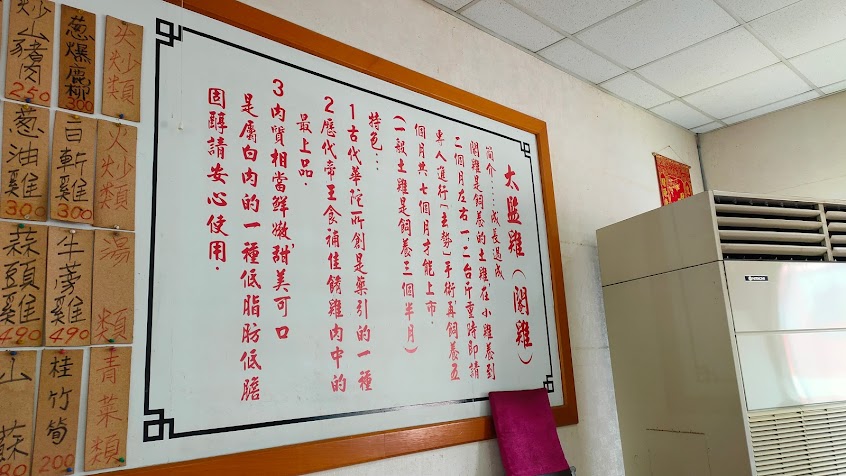 太監雞(閹雞)
簡介:……成長過成
閹雞是飼養的土雞在小雞養到
二個月左右一.二台斤重時即請
專人進行「去勢」手術再飼養五
個月共七個月才能上市.
(一般土雞是飼養三個半月)
特色:..
1古代華陀所創是藥引的一種
2歷代帝王食補佳餚雞肉中的
最上品.
3肉質相當鮮嫩甜美可口
是屬白肉的一種低脂肪低膽
固醇請安心使用.
火炒類
蔥爆鹿柳
300
炒山豬肉
250
火炒類
白斬雞
300
蔥油雞
300
湯類
牛蒡雞
490
蒜頭雞
490
青菜類
桂竹筍
200
山蘇